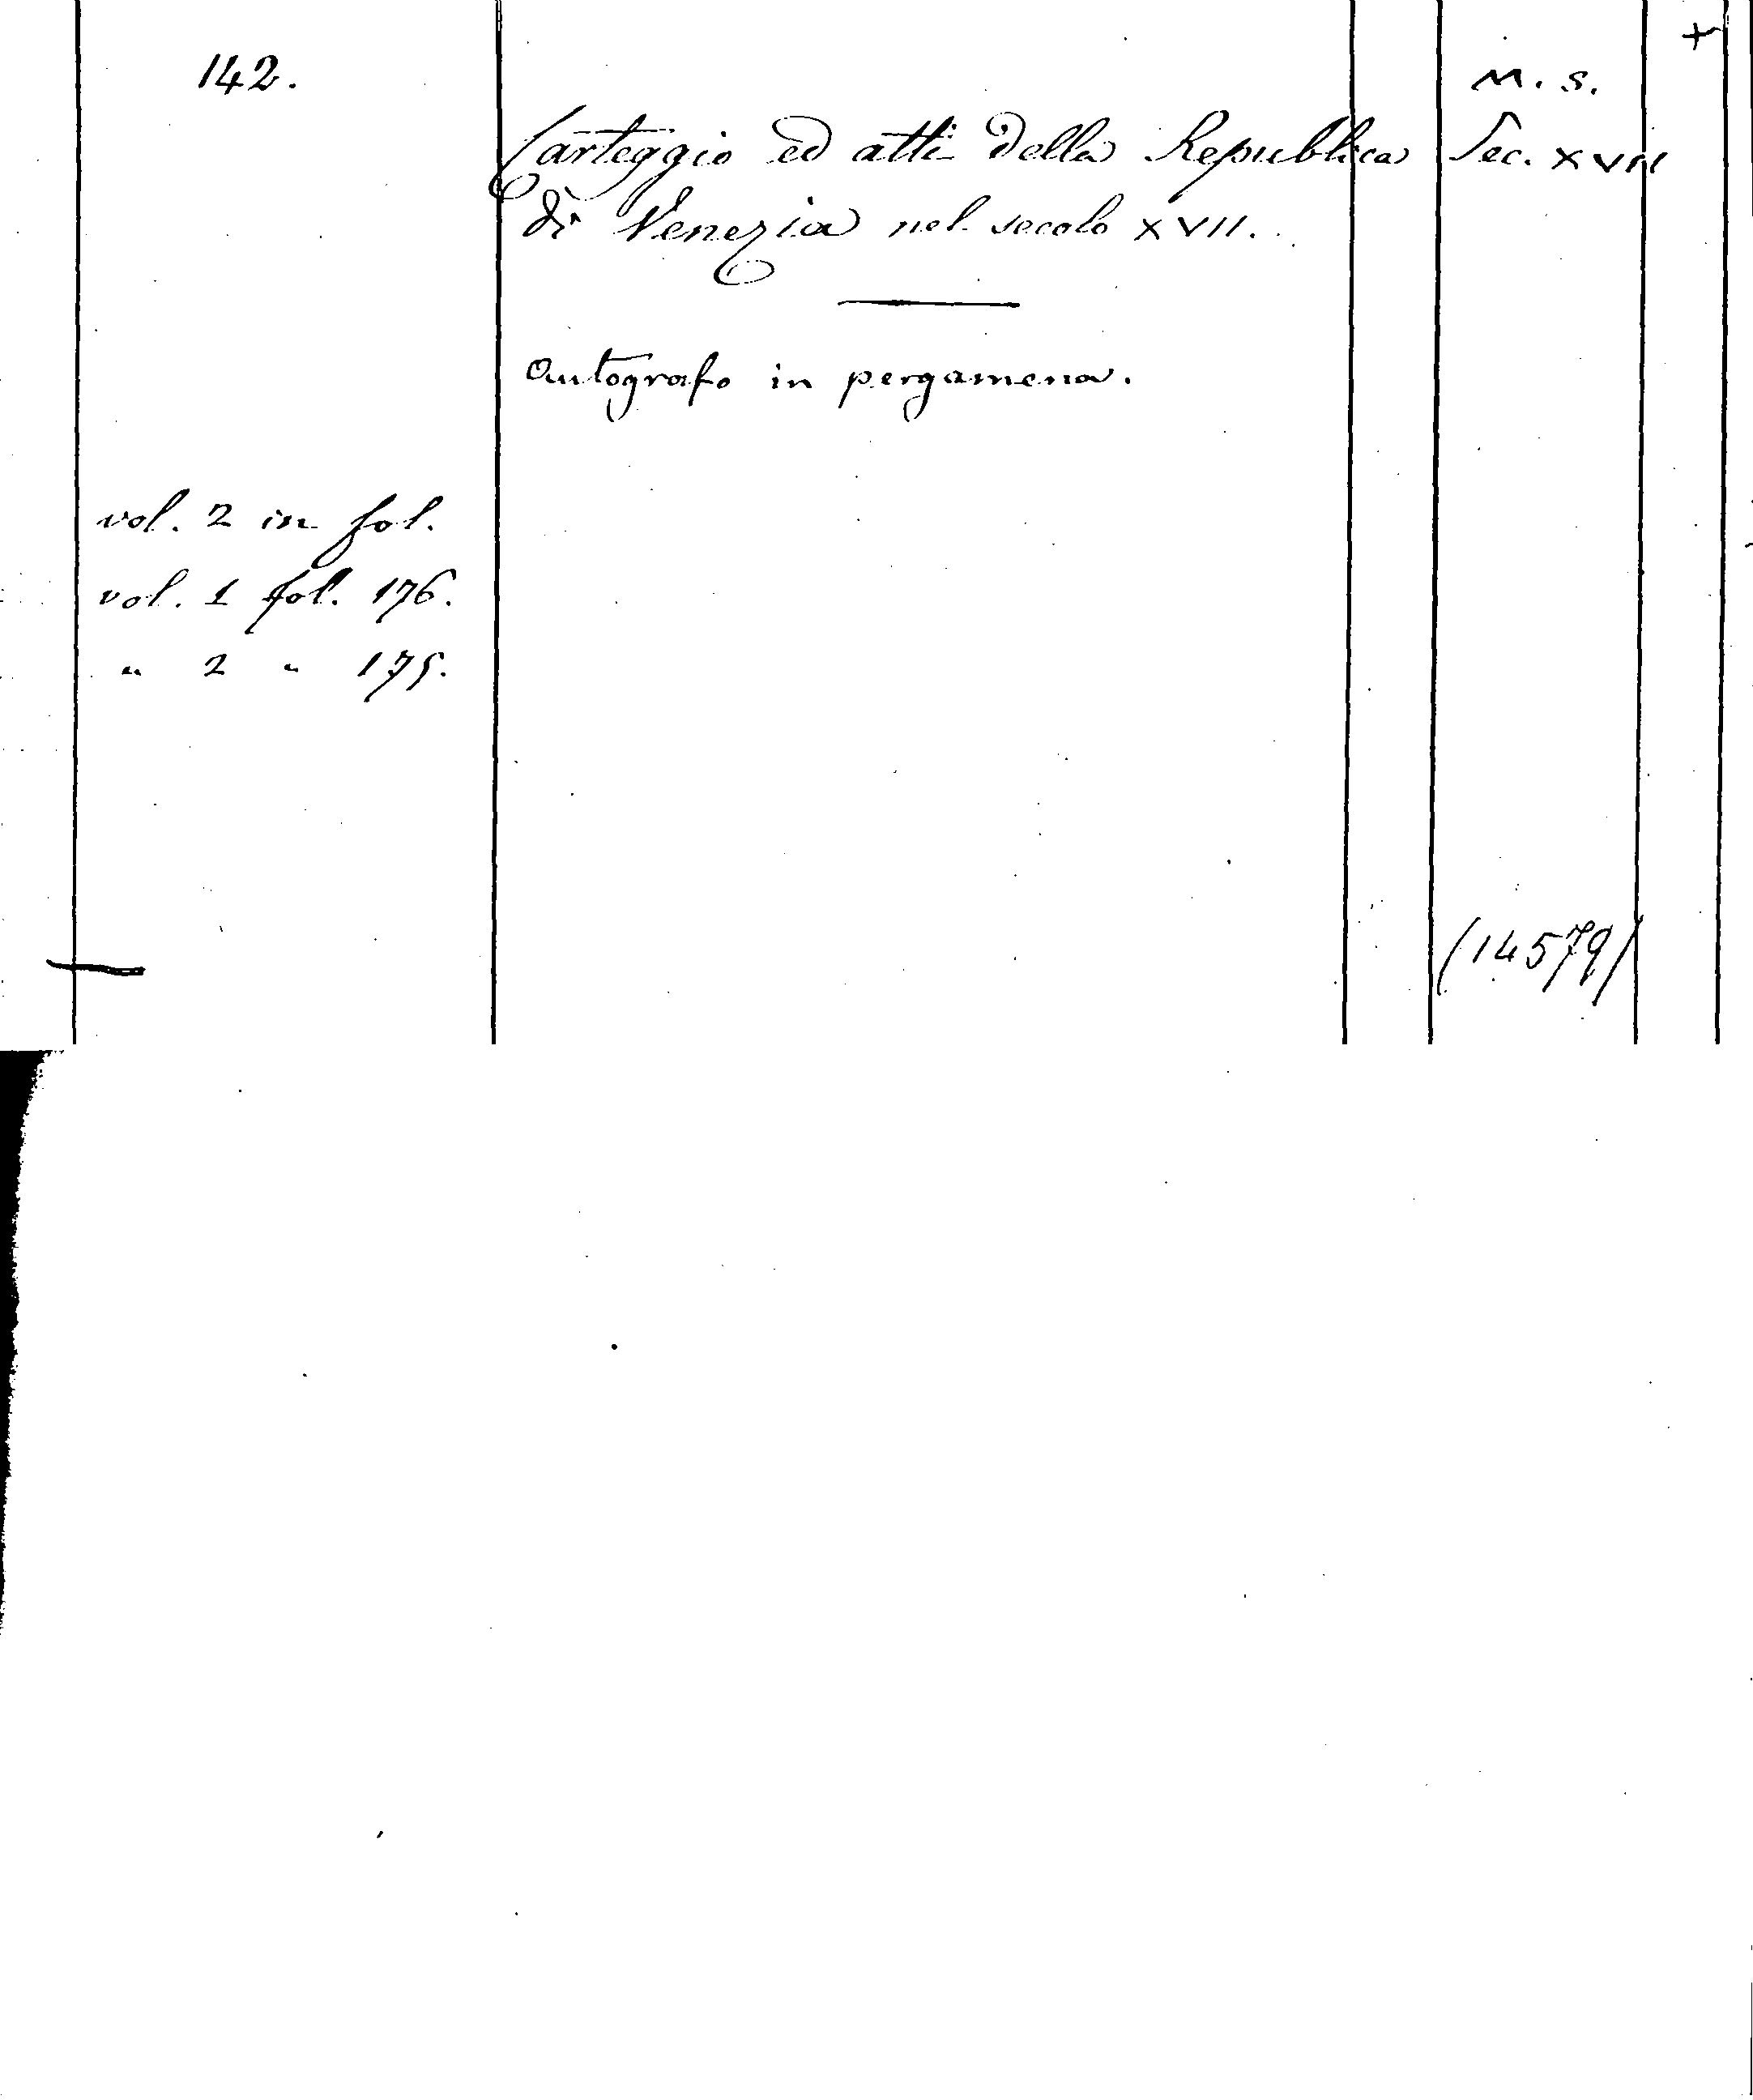 +
142.
M. S.
Carteggio ed atti della Republica
Sec. XVII
di Venezia nel secolo XVII.
Autografo in pergamena.
vol. 2 in fol.
vol. 1 fol. 176.
" 2 " 175.
(14579)